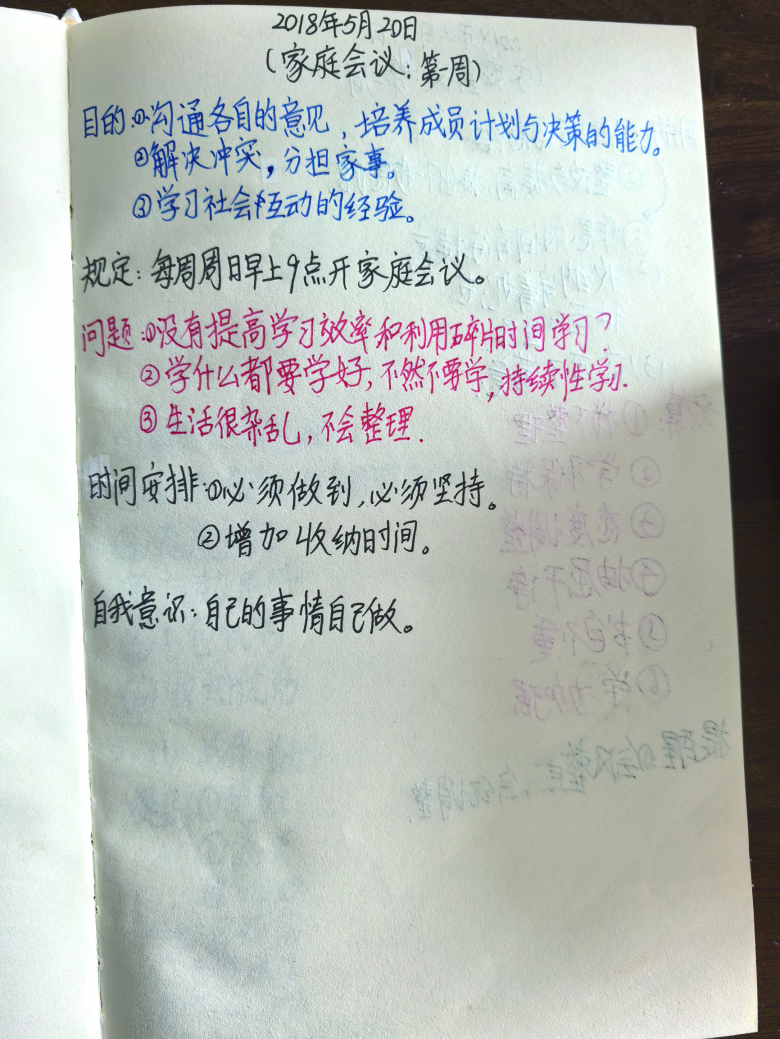 2018年5月20日
(家庭会议：第一周)
目的：①沟通各自的意见，培养成员计划与决策的能力。
②解决冲突，分担家事。
③学习社会互动的经验。
规定：每周周日早上9点开家庭会议。
问题：①没有提高学习效率和利用碎片时间学习？
②学什么都要学好，不然不要学，持续性学习.
③生活很杂乱，不会整理.
时间安排：①必须做到，必须坚持。
②增加收纳时间。
自我意识：自己的事情自己做。